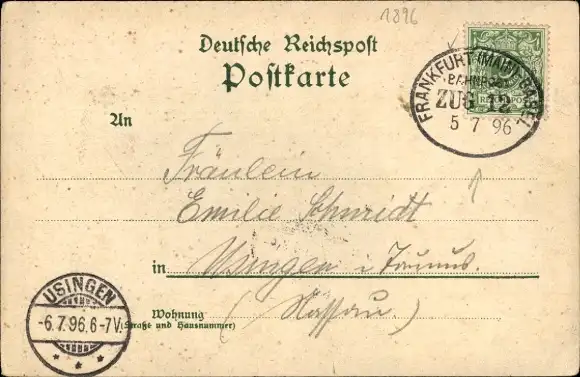 1896
Deutsche Reichspost
Postkarte
FRANKFURT (MAIN)-BASEL
BAHNPOST
ZUG 12
5 7 96
REICHSPOST
An
Fräulein
Emilie Schmidt
in Usingen i. Taunus.
(Nassau.)
Wohnung
(Straße und Hausnummer)
USINGEN
-6.7.96.6-7V.